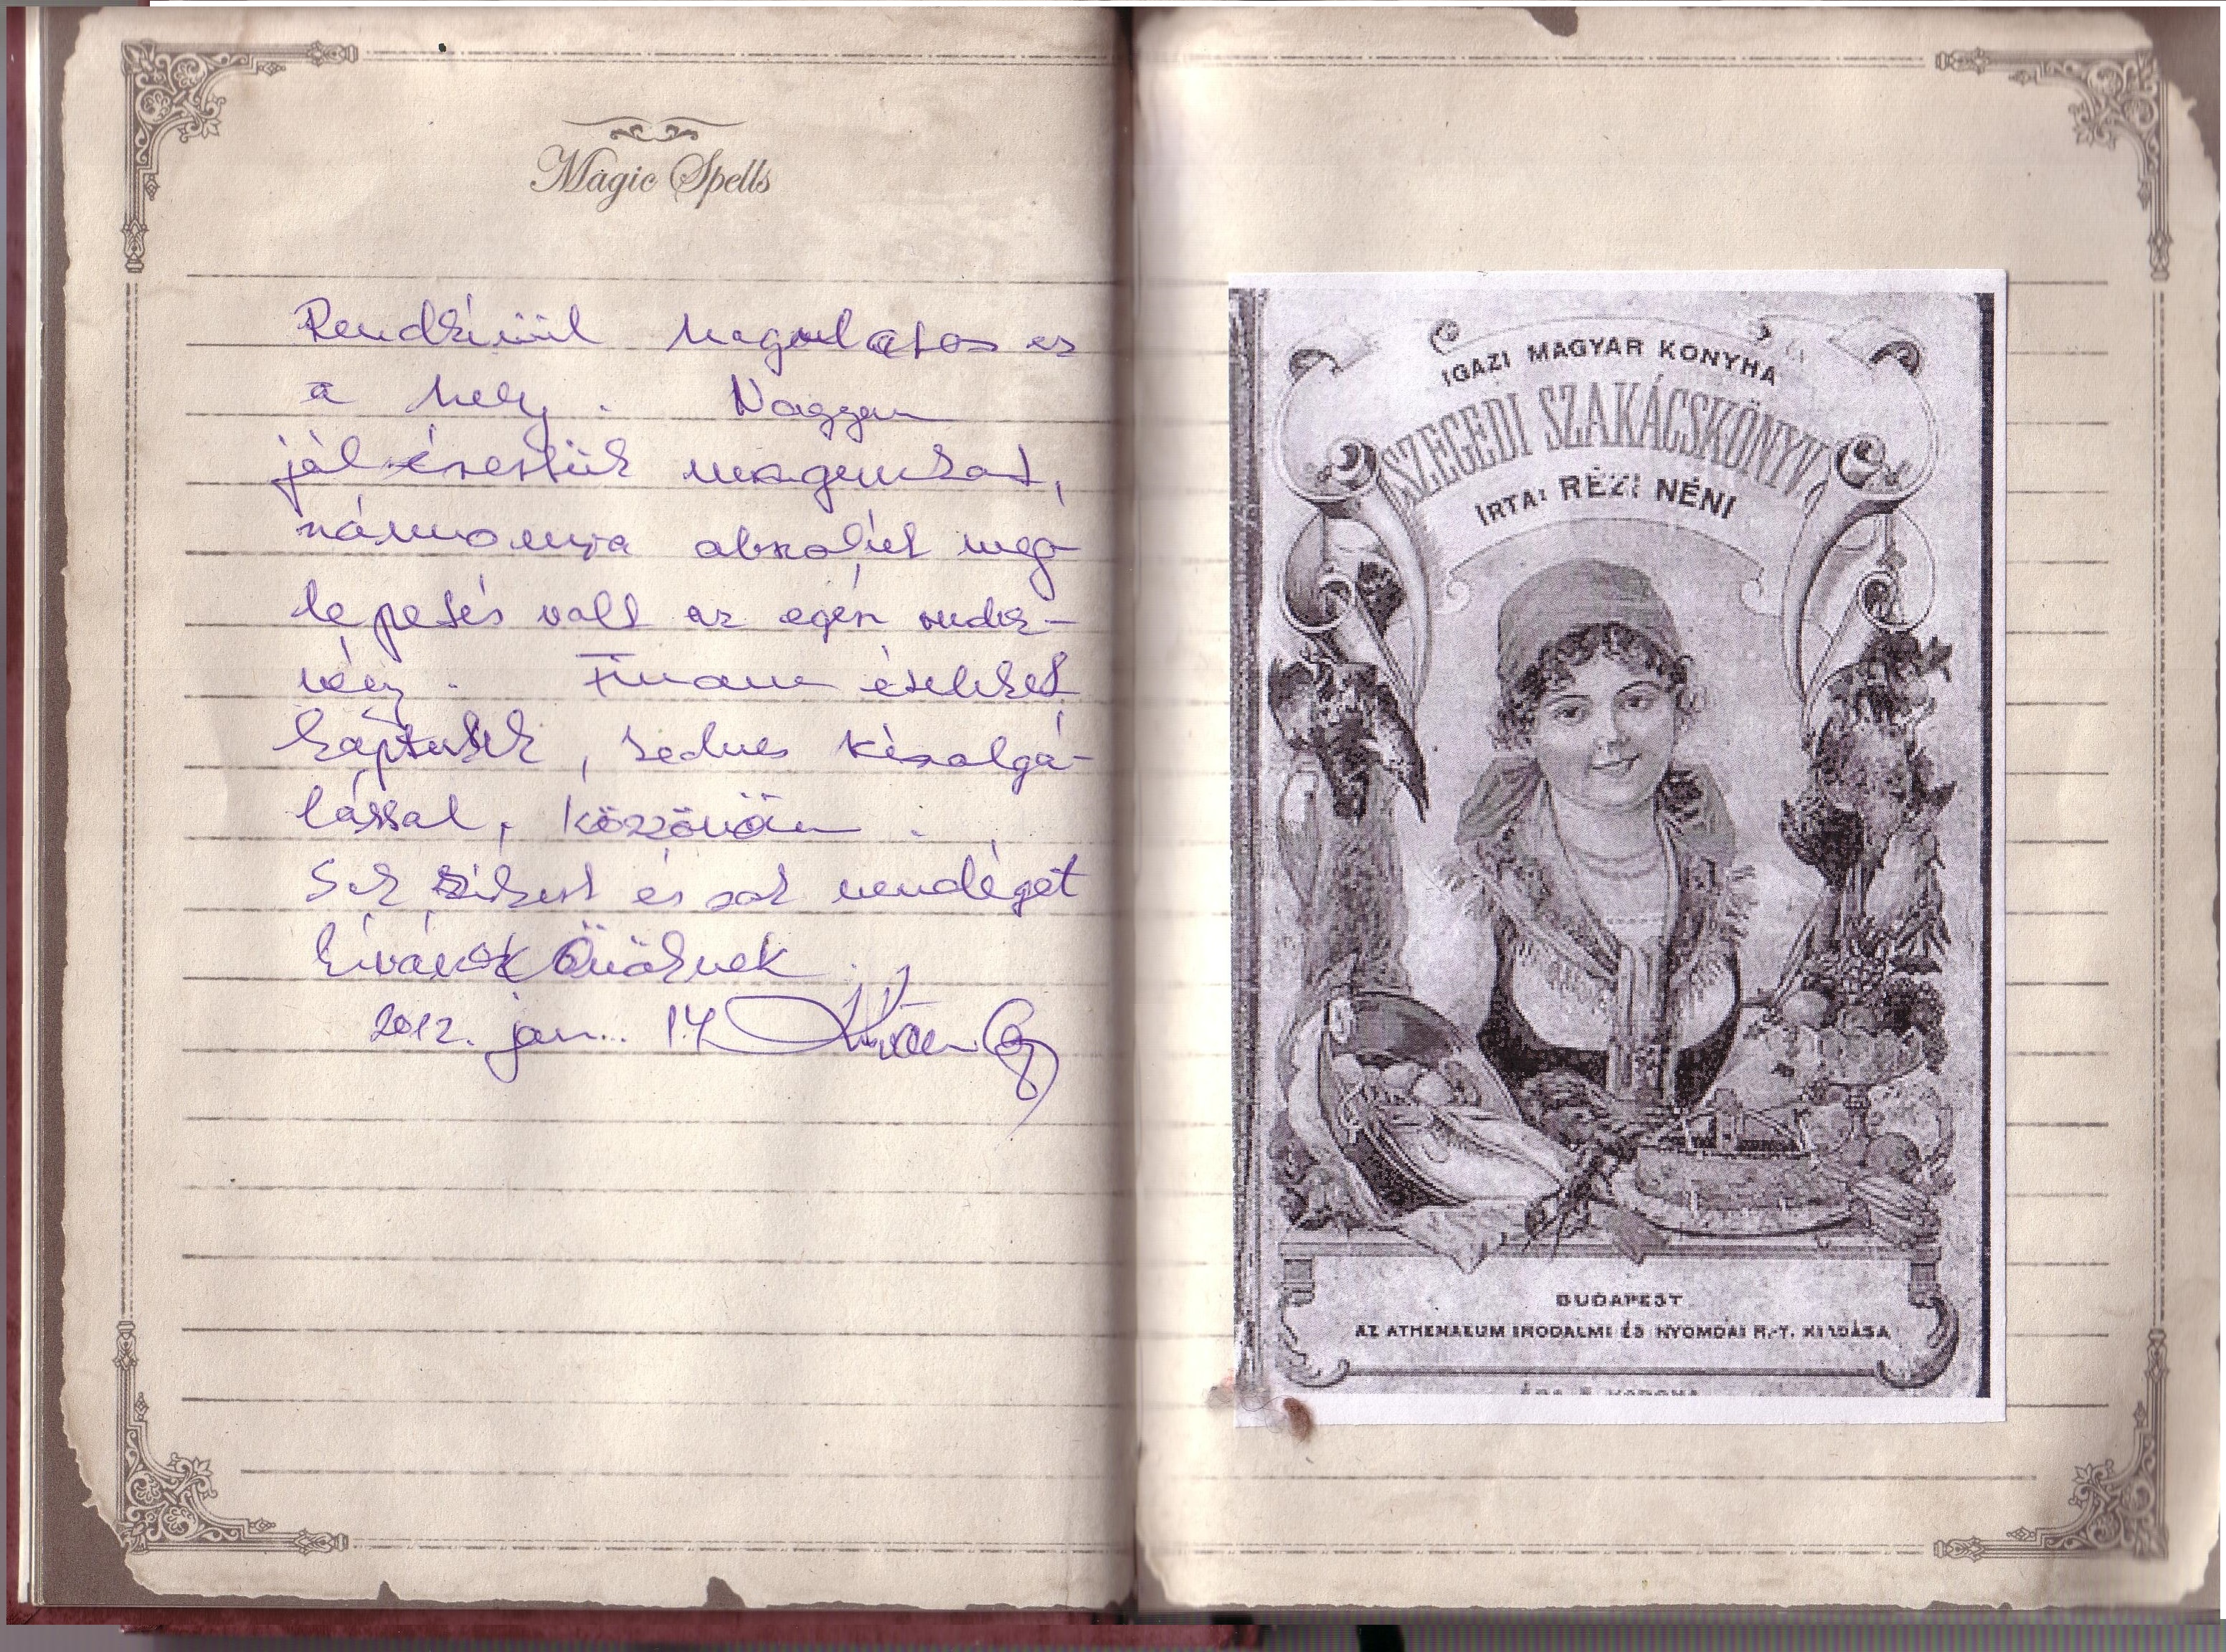 Magic Spells
Rendkívül hangulatos ez
a hely. Nagyon
jól éreztük magunkat,
számomra abszolút meg-
lepetés volt az egész rendez-
vény. Finom ételeket
kaptunk, kedves kiszolgá-
lással, köszönöm.
Sok sikert és sok vendéget
kívánok Önöknek.
2012. jan. 14
IGAZI MAGYAR KONYHA
SZEGEDI SZAKÁCSKÖNYV
IRTA: RÉZI NÉNI
BUDAPEST
AZ ATHENAEUM IRODALMI ÉS NYOMDAI R.-T. KIADÁSA